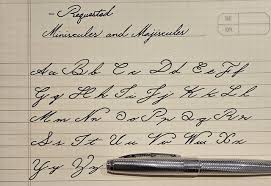 - Requested
Miniscules and Majiscules
Aa Bb Cc Dd Ee Ff
Gg Hh Ii Jj Kk Ll
Mm Nn Oo Pp Qq Rr
Ss Tt Uu Vv Ww Xx
Yy Zz